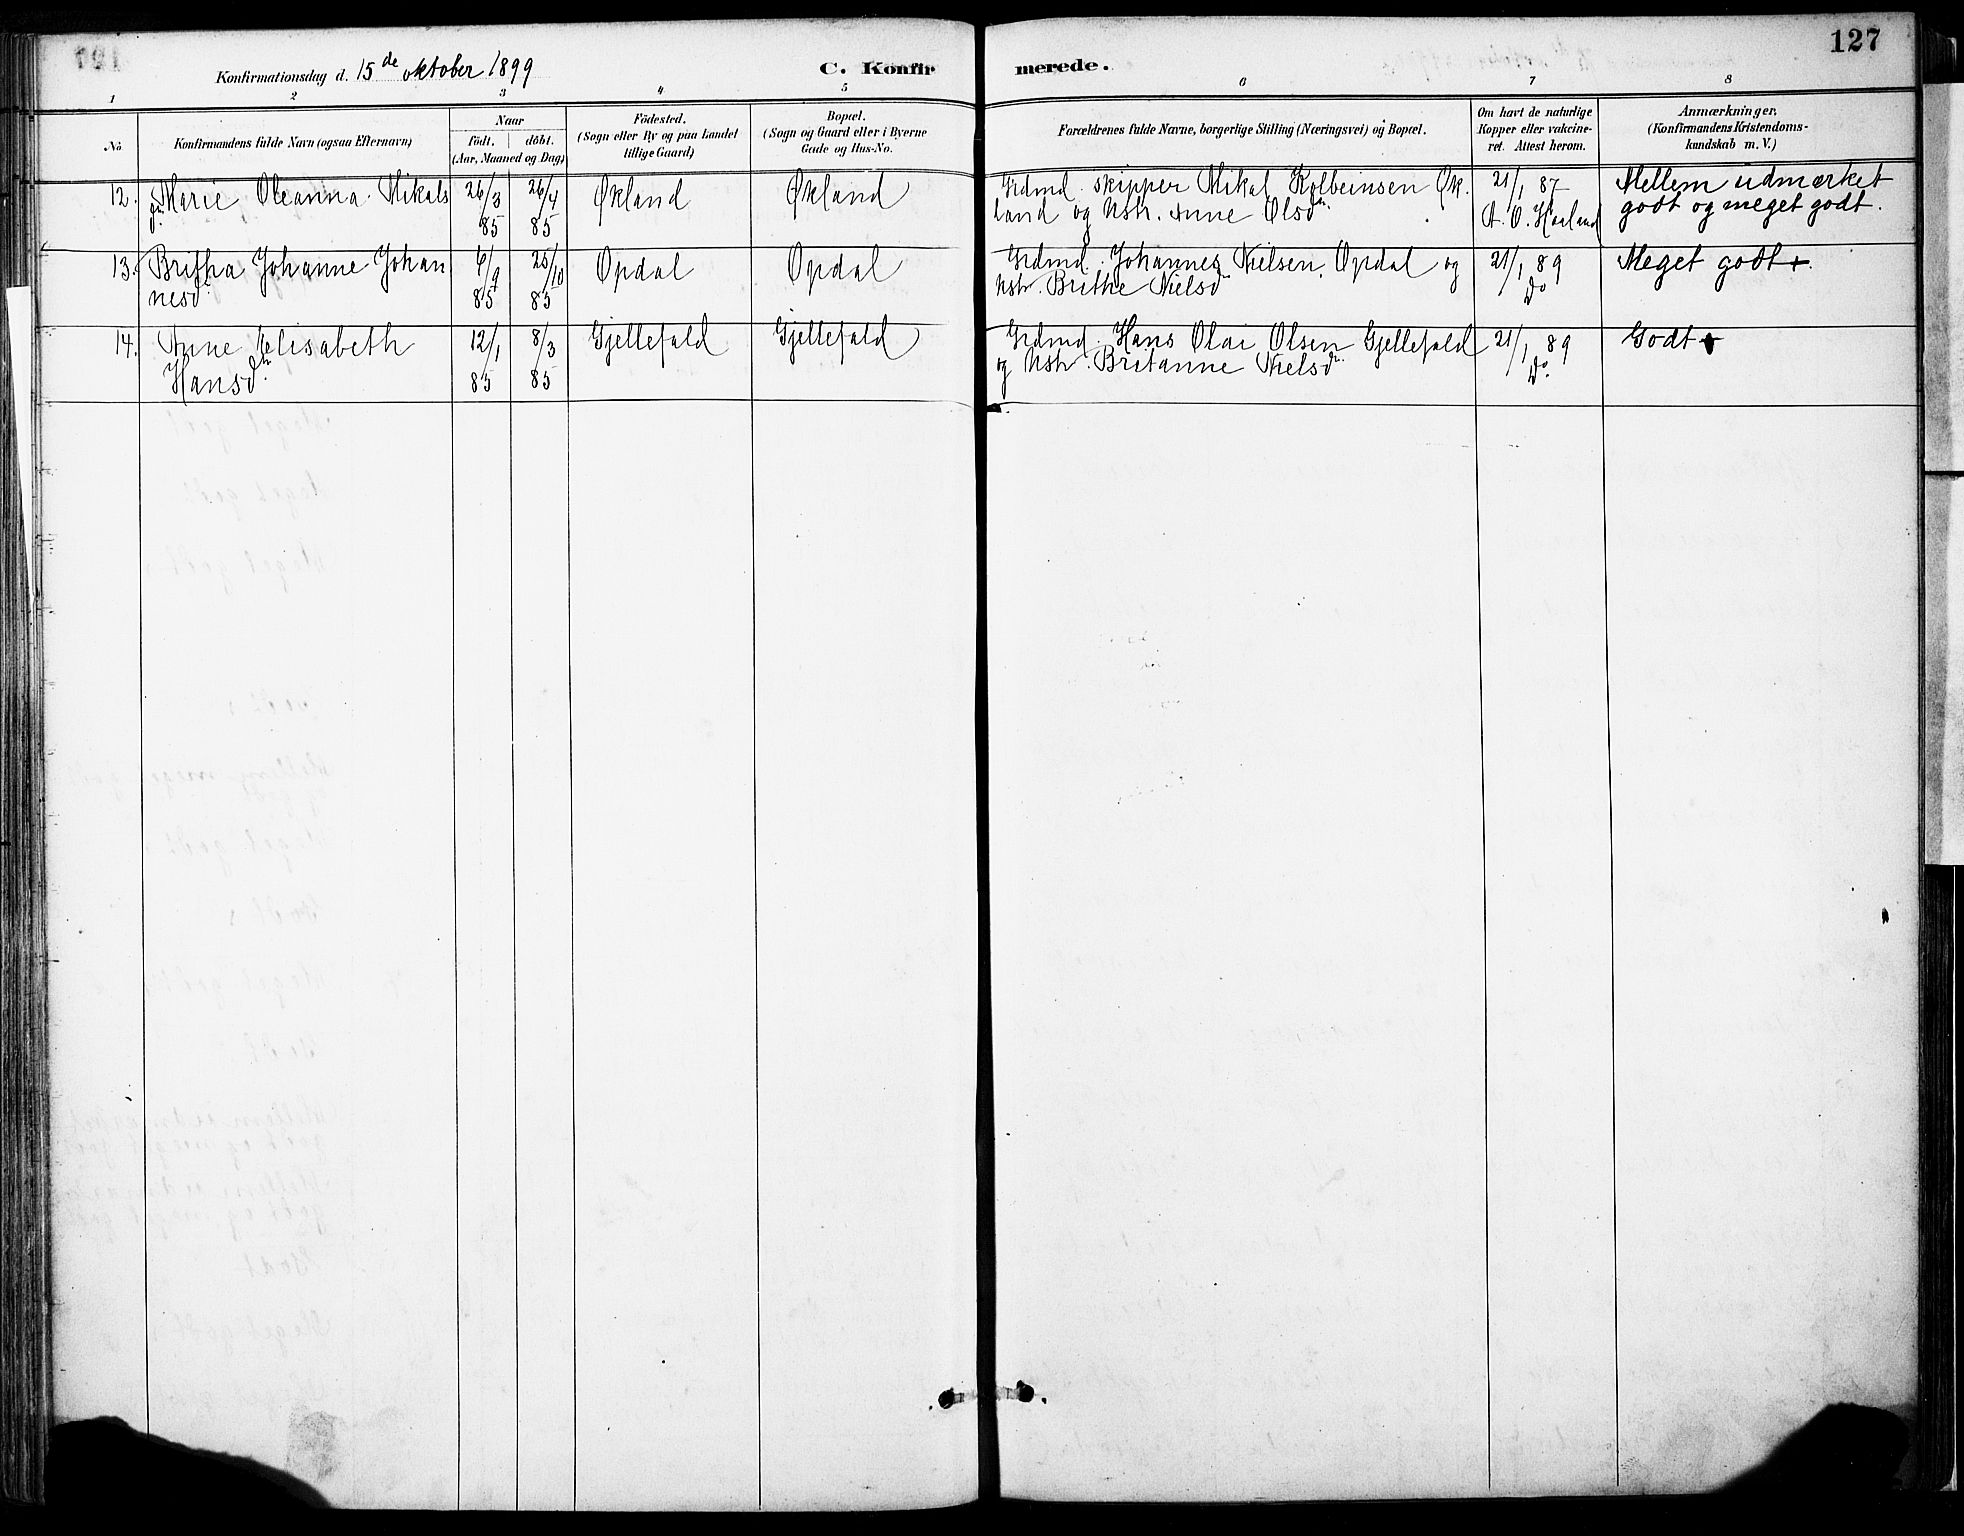 127
Konfirmationsdag d. 15de oktober 1899
C. Konfirmerede.
1 2 3 4 5 6 7 8
No. Konfirmandens fulde Navn (ogsaa Efternavn) Naar födt. döbt. (Aar, Maaned og Dag) Födested. (Sogn eller By og paa Landet tillige Gaard) Bopæl. (Sogn og Gaard eller i Byerne Gade og Hus-No. Forældrenes fulde Navne, borgerlige Stilling (Næringsvei) og Bopæl. Om havt de naturlige Kopper eller vakcineret. Attest herom. Anmærkninger. (Konfirmandens Kristendomskundskab m. V.)
12. Marie Oleanna Mikals 26/3 26/4 Økland Økland Grdmd. skipper Mikal Kolbeinsen Øk. 21/1 87 Mellem udmærket
85 85 land og Hstr. Anne Olsdtr. A. O. Høiland godt og meget godt.
13. Britha Johanne Johan 6/9 25/10 Opdal Opdal Grdmd. Johannes Nielsen Opdal og 21/1 89 Meget godt +.
nesd. 85 85 Hstr. Brithe Nielsd Do
14. Anne Elisabeth 12/1 8/3 Gjellefald Gjellefald Grdmd. Hans Olai Olsen Gjellefald 21/1 89 Godt +
Hansdtr. 85 85 og Hstr. Britanne Nielsdtr. Do.